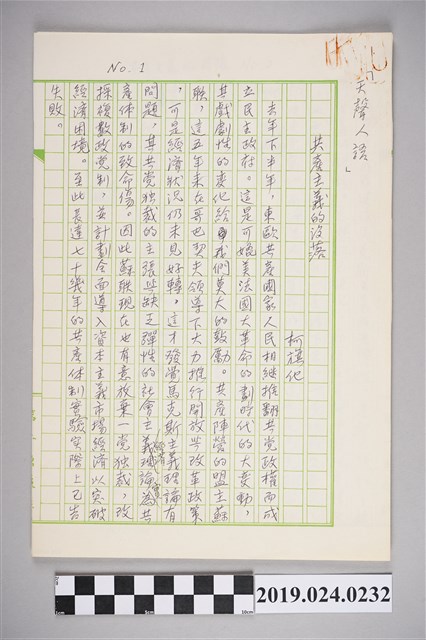 No. 1
天聲人語」
共產主義的沒落
柯旗化
去年下半年,東歐共產國家人民相繼推翻共党政權而成
立民主政府。這是可媲美法國大革命的劃時代的大變動,
其戲劇性的變化給我們莫大的鼓勵。共產陣營的盟主蘇
聯,這五年來在哥巴契夫領導下大力推行開放與改革政策
,可是經濟狀況仍未見好轉,這才發覺馬克斯主義理論有
問題,其共党独裁的主張與缺乏彈性的社會主義經濟理論為共
產体制的致命傷。因此蘇聯現在也有意放棄一党独裁,改
採複數政党制,並計劃全面導入資本主義市場經濟以突破
經濟困境。至此長達七十幾年的共產体制實驗實際上已告
失敗。
1cm
5cm
10cm
2019.024.0232